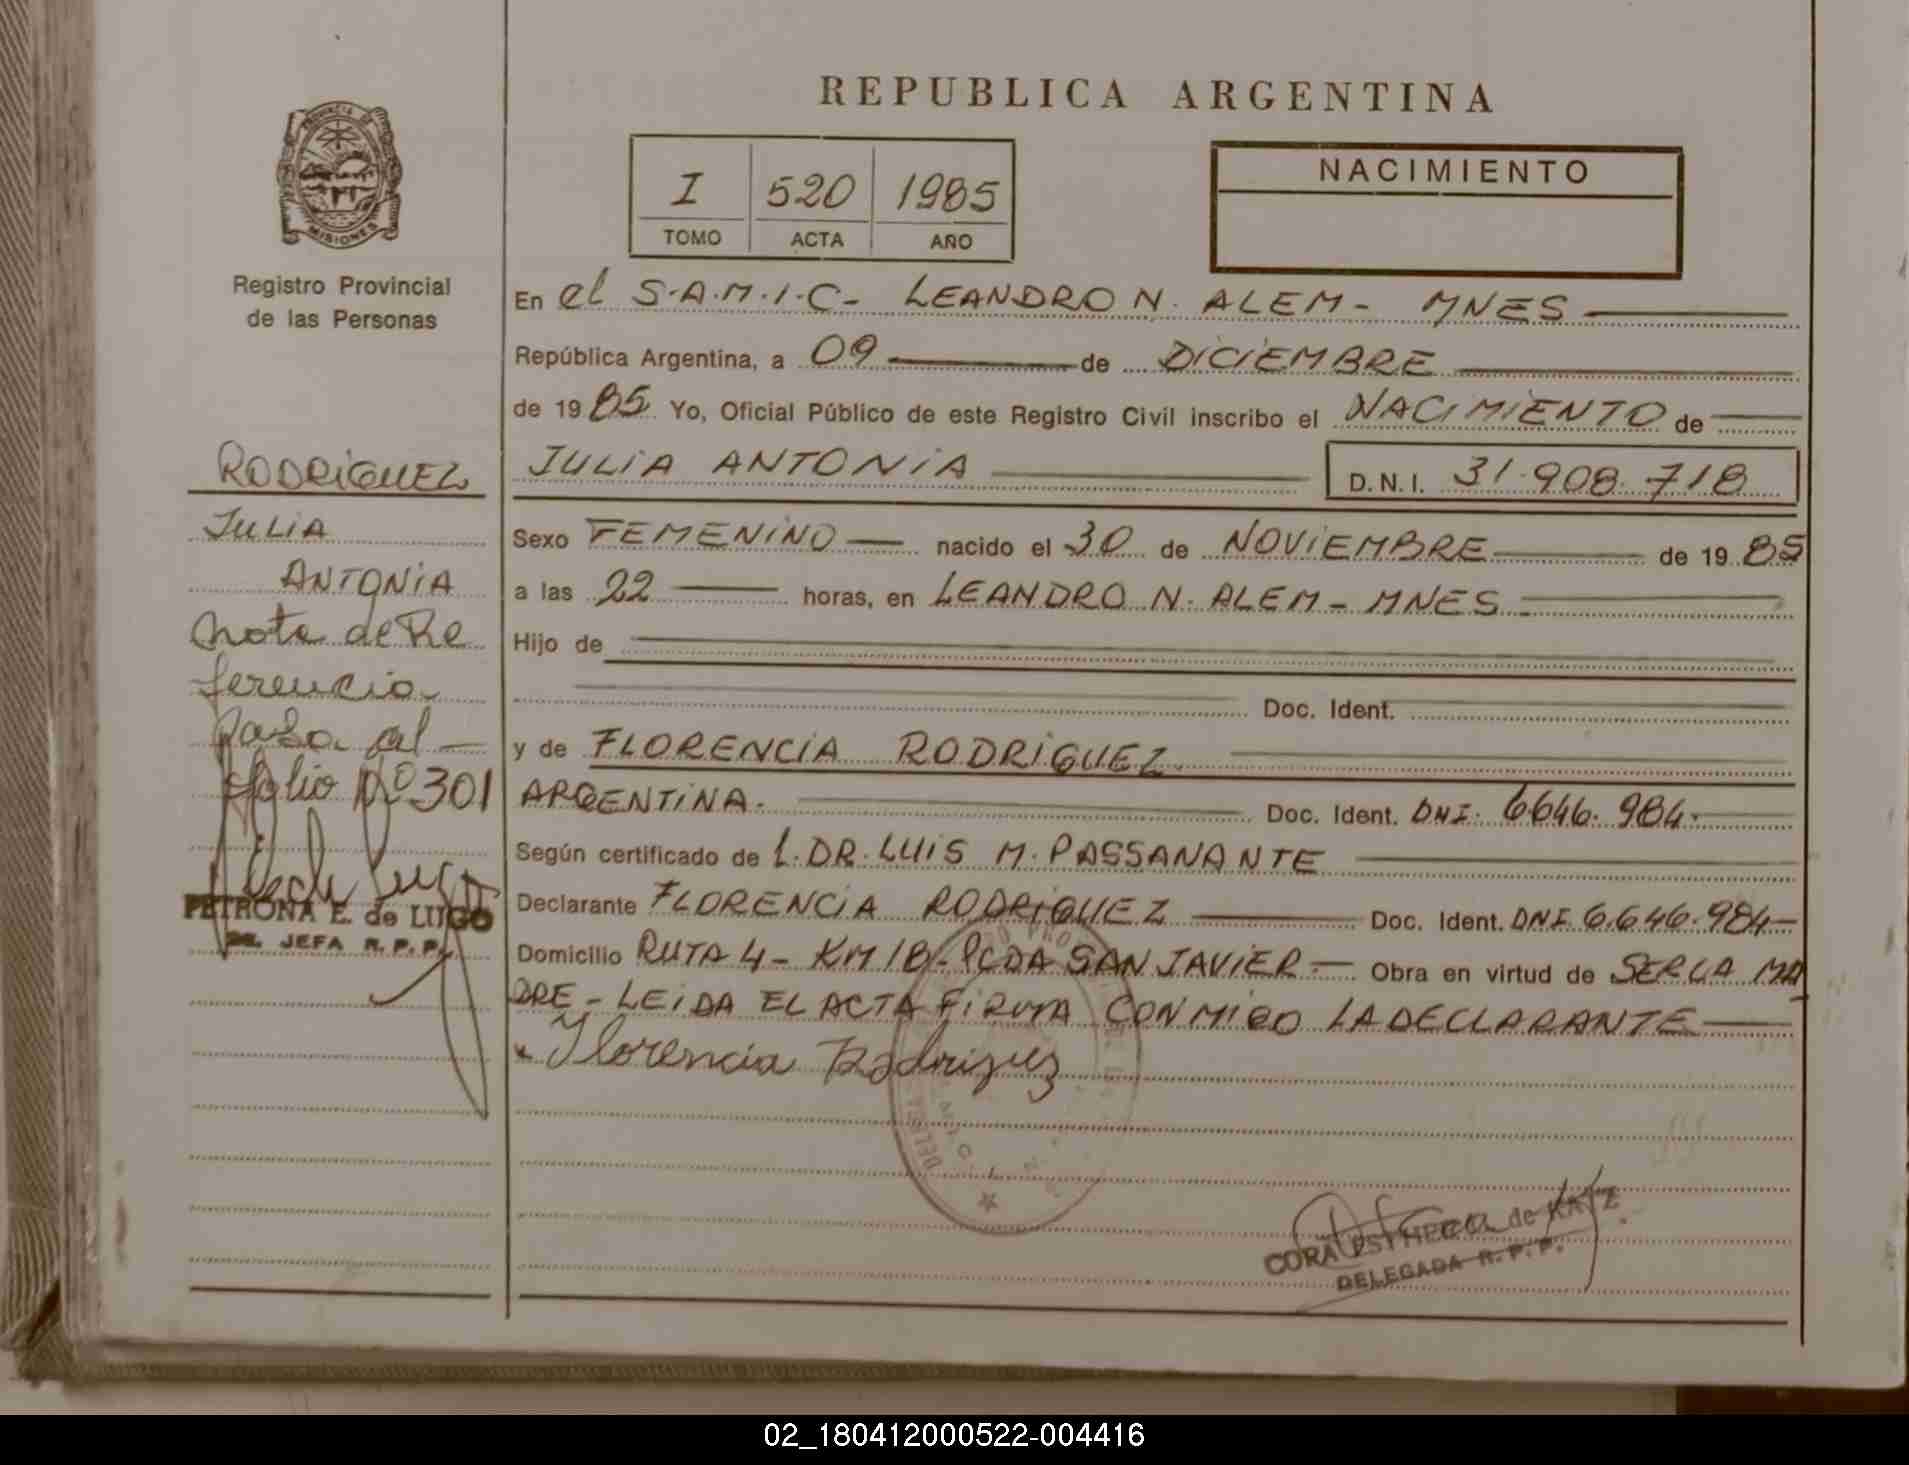 REPUBLICA ARGENTINA
PROVINCIA DE
MISIONES
Registro Provincial
de las Personas
I 520 1985
TOMO ACTA AÑO
NACIMIENTO
En el S.A.M.I.C- LEANDRO N. ALEM- MNES
República Argentina, a 09 de DICIEMBRE
de 1985 Yo, Oficial Público de este Registro Civil inscribo el NACIMIENTO de
JULIA ANTONIA D.N.I. 31.908.718
Sexo FEMENINO nacido el 30 de NOVIEMBRE de 1985
a las 22 horas, en LEANDRO N. ALEM- MNES.
Hijo de
Doc. Ident.
y de FLORENCIA RODRIGUEZ
ARGENTINA. Doc. Ident. DNI. 6646.984.
Según certificado de L.DR.LUIS M.PASSANANTE
Declarante FLORENCIA RODRIGUEZ Doc. Ident. DNI 6.646.984
Domicilio RUTA 4- KM 18-PCDA SAN JAVIER- Obra en virtud de SER LA MA
DRE- LEIDA EL ACTA FIRMA CONMIGO LA DECLARANTE
x Florencia Rodriguez
RODRIGUEZ
JULIA
ANTONIA
Nota de Re
ferencia
pasa al
folio Nº 301
PETRONA E. de LUGO
JEFA R.P.P.
CORA ESTHER de KATZ
DELEGADA R.P.P.
02_180412000522-004416